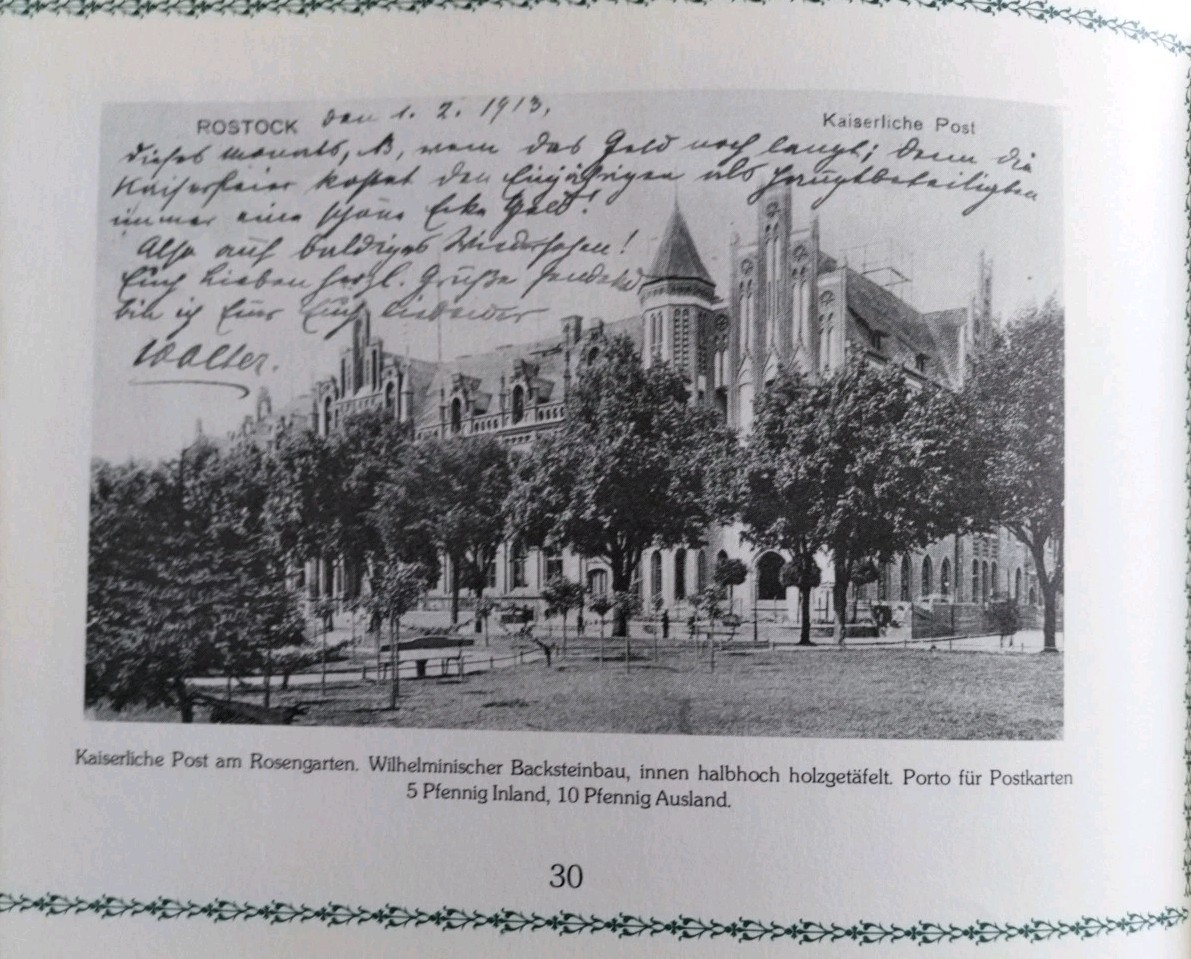 ROSTOCK den 1. 2. 1913.
Kaiserliche Post
dieses Monats, wenn das Geld noch langt; denn die
Kaiserfeier kostet den Einjährigen als Hauptbeteiligten
immer eine schöne Ecke Geld!
Also auf baldiges Wiedersehen!
Euch Lieben herzl. Grüße sendend
bin ich Euer Euch liebender
Walter.
Kaiserliche Post am Rosengarten. Wilhelminischer Backsteinbau, innen halbhoch holzgetäfelt. Porto für Postkarten
5 Pfennig Inland, 10 Pfennig Ausland.
30